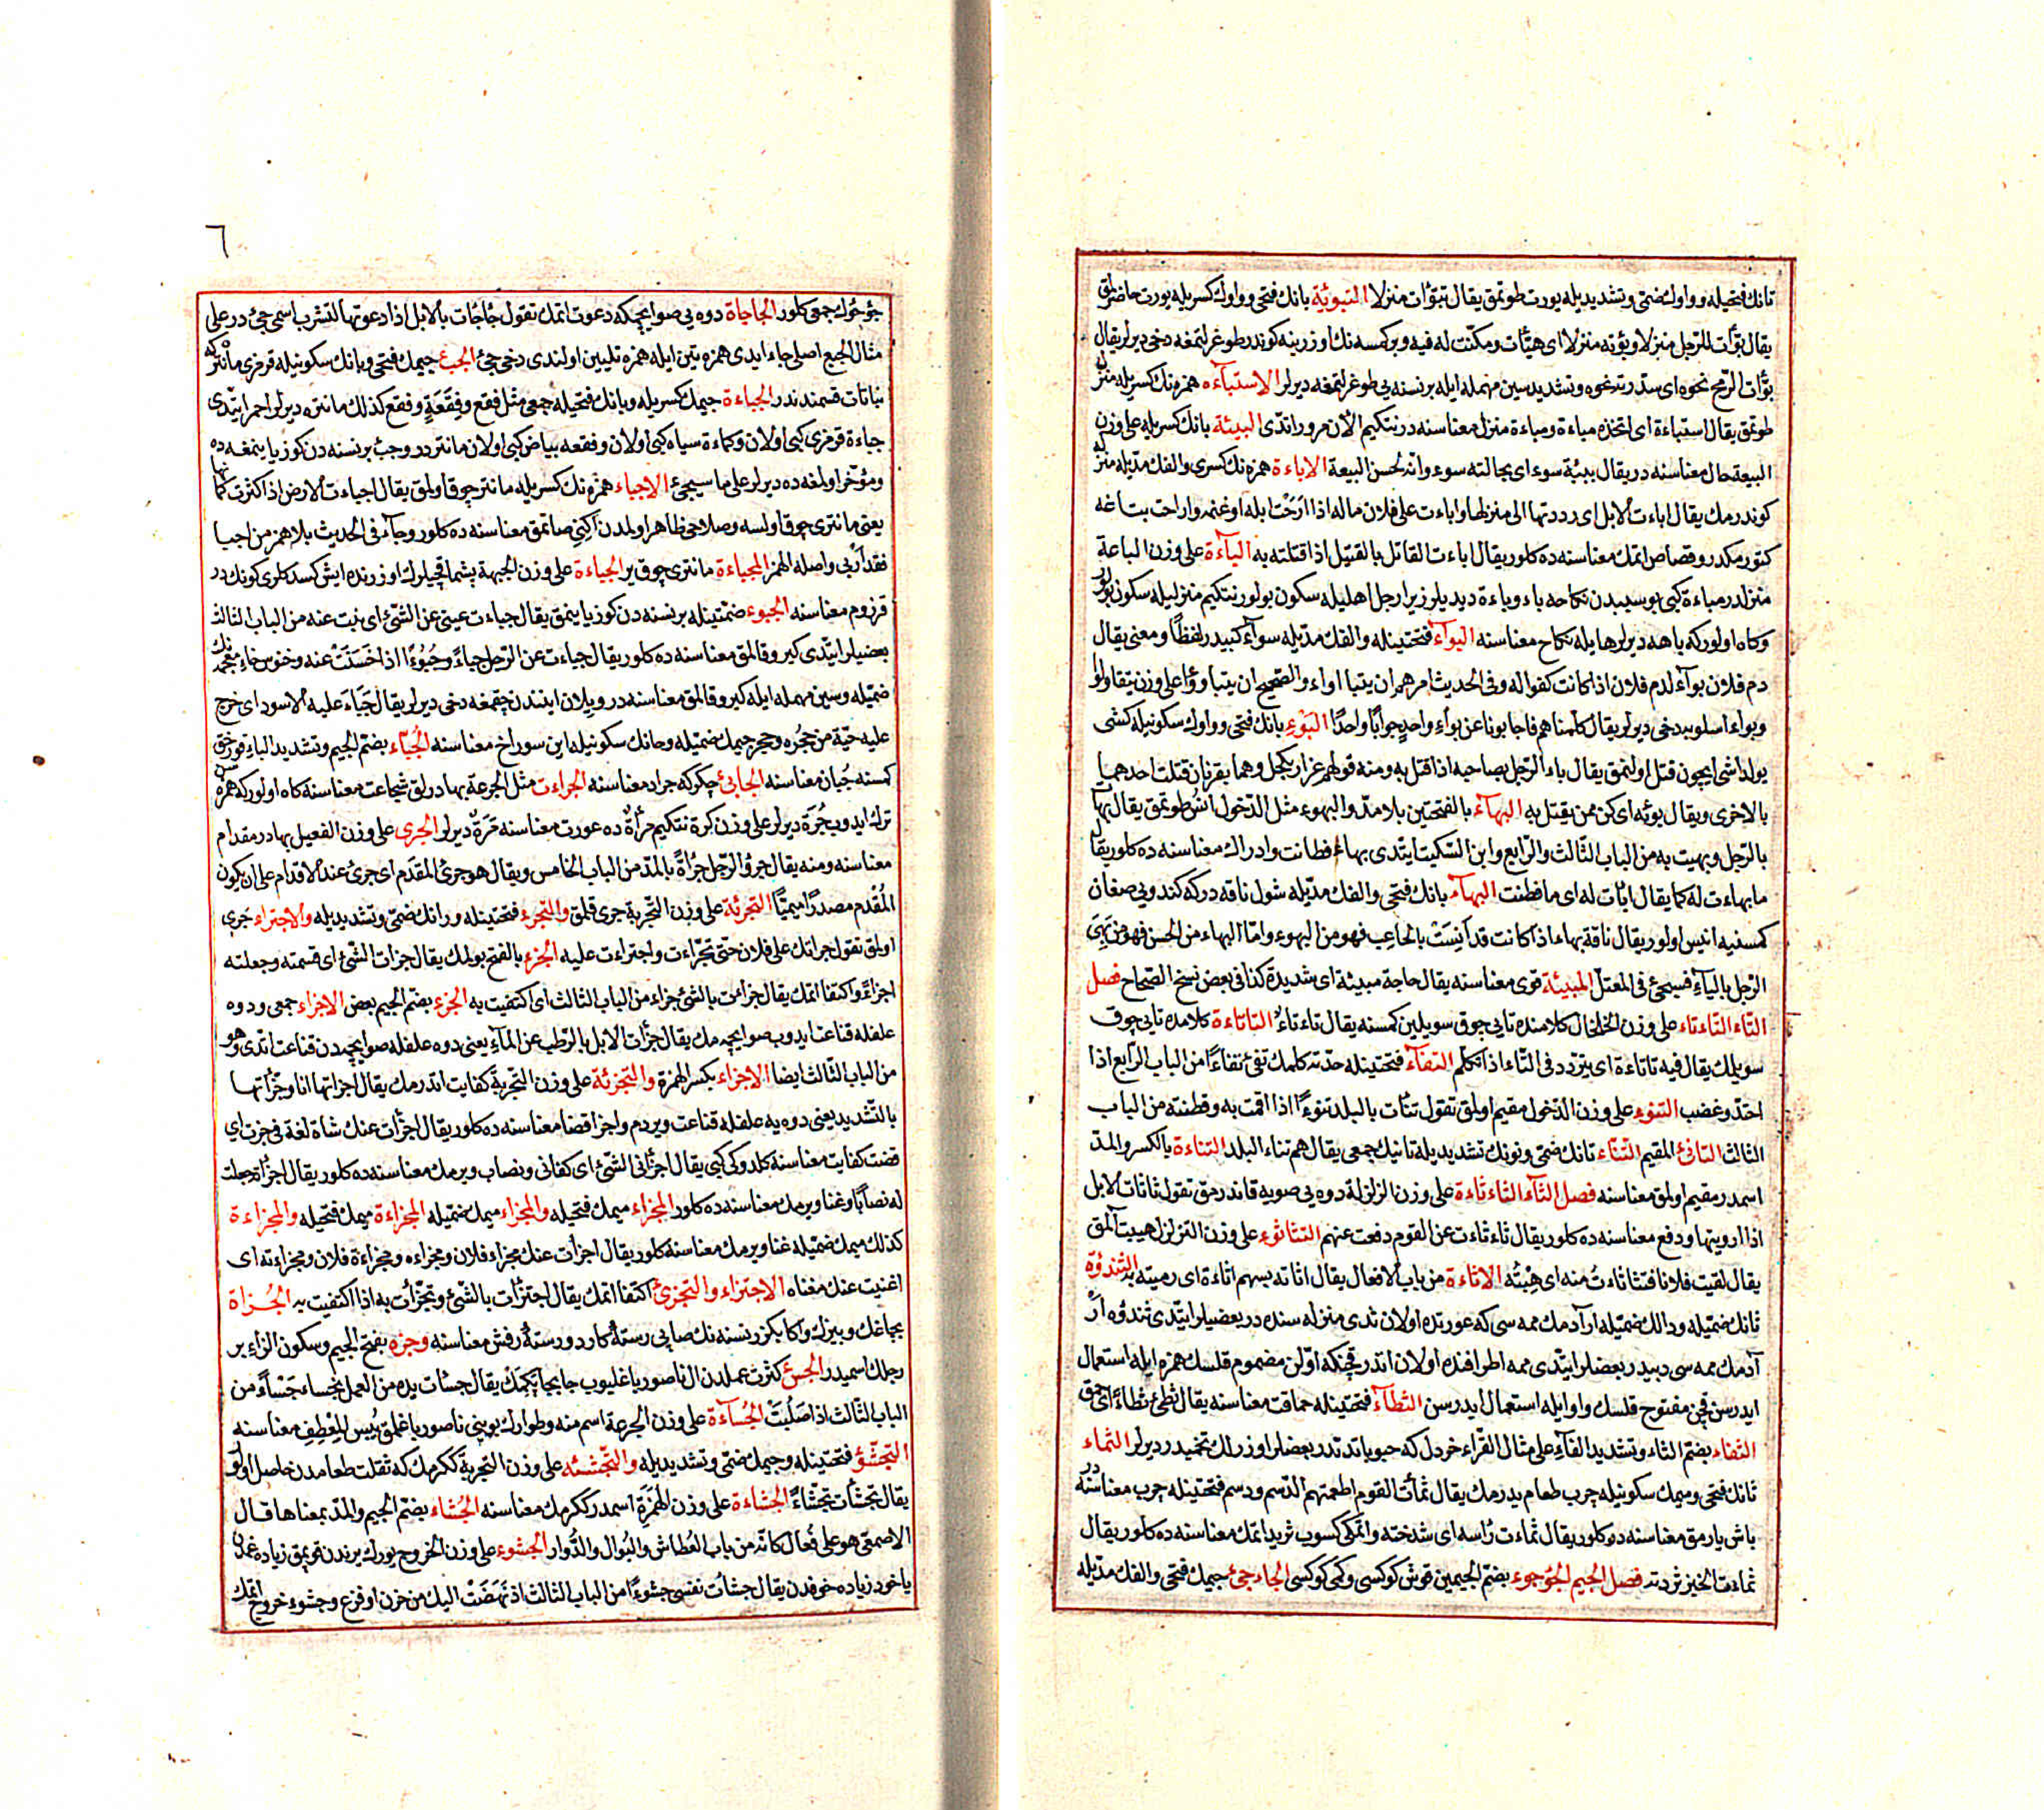 تانك فتحيله وواوك ضمّى وتشديديله يورت طوتمق يقال تبوّأت منزلا التبوئة بانك فتحى وواوك كسريله يورت حاضرلمق
يقال بوّأت للرّجل منزلا وبؤته منزلا اى هيّأت ومكّنت له فيه وبر كمسه نك اوزرينه كوندر طوغرلتمغه دخى ديرلر يقال
بوّأت الرّمح نحوه اى سدّدته نحوه وتشديد سين مهمله ايله بر نسنه يى طوغرلتمغه ديرلر الاستبآءه همزه نك كسريله منزل
طوتمق يقال استباءة اى اتّخذه مباءة ومباءة منزل معناسنه در نتكيم الآن مرور اتدّى البيئة بانك كسريله على وزن
البيعة حال معناسنه در يقال ببئة سوء اى بحالته سوء وانّه لحسن البيعة الاباءة همزه نك كسرى والفك مدّيله منزله
كوندرمك يقال اباءت الابل اى رددتها الى منزلها واباءت على فلان ماله اذا ارَحْتَ ابله او غنمه واراحت بتاغه
كتورمكدر وقصاص اتمك معناسنه ده كلور يقال اباءت القاتل بالقتيل اذا قتلته به البآءة على وزن الباعة
منزلدر مباءة كبى بو سببدن نكاحه باء وباءة ديديلر زيرا رجل اهليله سكون بولور نتكيم منزليله سكون بولور
وكاه اولور كه باهه ديرلر هايله نكاح معناسنه البوآء فتحتينله والفك مدّيله سوآء كبيدر لفظًا ومعنى يقال
دم فلان بوآء لدم فلان اذا كانت كفوا له وفى الحديث امرهم ان يتبااواء والصّحيح ان يتباوؤا على وزن يتقاولوا
وبواء اسلوبه دخى ديرلر يقال كلّمناهم فاجابونا عن بواءٍ واحدٍ جوابًا واحدًا البَوْءِ بانك فتحى وواوك سكونيله كشى
يولداشى ايچون قتل اولنمق يقال باء الرّجل بصاحبه اذا قتل به ومنه قولهم عرار بكحل وهما بقرتان قتلت احديهما
بالاخرى ويقال بوئه اى كن ممن يقتل به البهآء بالفتحتين بلا مدّ والبهوء مثل الدّخول انسُ طوتمق يقال بهأت
بالرّجل وبهيت به من الباب الثّالث والرّابع وابن السّكيت ايتدى بهاء فطانت وادراك معناسنه ده كلور يقال
ما بهاءت له كما يقال ابأت له اى ما فطنت البهآء بانك فتحى والفك مدّيله شول ناقه در كه كندويى صغان
كمسنيه انيس اولور يقال ناقة بهاء اذا كانت قد آنِسَتْ بالحاعِب فهو من البهوء وامّا البهاء من الحسن فهو من بَهِىَ
الرّجل بالياءِ فسيجئ فى المعتل المبيئة قوى معناسنه يقال حاجة مبيئة اى شديدة كذا فى بعض نسخ الصّحاح فصل
التّاء التّاءتاء على وزن الخلخال كلامنده تايى چوق سويلين كمسنه يقال تاءتاءُ التاتاءة كلامده تايى چوق
سويلك يقال فيه تاتاءة اى يتردد فى التّاء اذا تكلم التفآء فتحتينله حدّته كلمك تفئ تفاءًا من الباب الرّابع اذا
احتدّ وغضب التنوء على وزن الدّخول مقيم اولمق تقول تنأت بالبلد تنوءًا اذا اقمت به وقطنته من الباب
الثالث التانئ المقيم التنّاء تانك ضمّى ونونك تشديديله تانيك جمعى يقال هم تناء البلد التناءة بالكسر والمدّ
اسمدر مقيم اولمق معناسنه فصل الثآء الثاءثاءة على وزن الزلزلة دوه يى صويه قاندرمق تقول ثاثات الابل
اذا ارويتها ودفع معناسنه ده كلور يقال ثاءثاءت عن القوم دفعت عنهم التثاثوء على وزن التزلزل هيبت آلمق
يقال لقيت فلانا فتثاثاءتُ منه اى هِبْتُه الاثاءة من باب الافعال يقال اثاته بسهم اثاءة اى رميته به الثندؤة
ثانك ضمّيله ودالك ضمّيله ار آدمك ممه سى كه عورتده اولان ثدى منزله سنده در بعضيلر ايتدّى ثندؤه ار
آدمك ممه سى دبيدر بعضلر ايتدّى ممه اطرافنده اولان اتدر قچنكه اوّلن مضموم قلسك همزه ايله استعمال
ايدرسن قچن مفتوح قلسك واوايله استعمال ايدرسن الثطآء فتحتينله حماقت معناسنه يقال ثطئ ثطاءً اى حمق
الثفاء بضمّ الثاء وتشديد الفآءِ على مثال القرّاء خردل كه حبوباتدندر بعضلر اوزرلك تخميدر ديرلر الثماء
ثانك فتحى وميمك سكونيله چرب طعام يدرمك يقال ثمأت القوم اطعمتهم الدّسم ودسم فتحتينله چرب معناسنه در
باش يارمق معناسنه ده كلور يقال ثماءت رأسه اى شدخته واتمكى كسوب ثريد اتمك معناسنه ده كلور يقال
ثماءت الخبز ثردته فصل الجيم الجؤجوء بضمّ الجيمين قوش كوكسى وكمى كوكسى الجاءجئ جيمك فتحى والفك مدّيله
٦
جؤجؤك جمعى كلور الجاجاة دوه يى صو ايچمكه دعوت اتمك تقول جأجأت بالابل اذا دعوتها لتشرب اسمى جئ در على
مثال الجيع اصلى جاء ايدى همزه تين ايله همزه تليين اولندى دخى جئ الجبء جيمك فتحى وبانك سكونيله قرمزى مانتر كه
نباتات قسمندندر الجباءة جيمك كسريله وبانك فتحيله جمعى مثل فقع وفِقَعَةٍ وفقع كذلك مانتره ديرلر احمر ايتدّى
جباءة قرمزى كبى اولان وكماءة سياه كبى اولان وفقعه بياض كبى اولان مانتردر وجبْ بر نسنه دن كوز ياينمغه ده
ومؤخّر اولمغه ده ديرلر على ما سيجئ الاجباء همزه نك كسريله مانتر چوق اولمق يقال اجباءت الارض اذا كثرت كماتها
يعنى مانترى چوق اولسه وصلاحى ظاهر اولمدن اكينى صاتمق معناسنه ده كلور وجآء فى الحديث بلا همز من اجبا
فقد اربى واصله الهمز المجباءة مانترى چوق ير الجباءة على وزن الجبهة بشماقچيلرك اوزرنده ايش كسدكلرى كونك در
قرزوم معناسنه الجبوء ضمّتينله بر نسنه دن كوز ياينمق يقال جباءت عينى عن الشّئ اى نبت عنه من الباب الثالث
بعضيلر ايتدّى كيرو قالمق معناسنه ده كلور يقال جباءت عن الرّجل جباءً وجُبُوْءًا اذا خنسَتْ عنه وخنوس خاء معجمه نك
ضميّله وسين مهمله ايله كيرو قالمق معناسنه در وييلان ايندن چقمغه دخى ديرلر يقال جَبَاءَ عليه الاسود اى خرج
عليه حيّة من جحُره وجحر جيمك ضمّيله وحانك سكونيله اين سوراخ معناسنه الجُبّاء بضمّ الجيم وتشديد الباءِ قورقق
كمسنه جُبان معناسنه الجابئ چكركه جراد معناسنه الجراءت مثل الجرعة بهادرلق شجاعت معناسنه كاه اولور كه همزه سن
ترك ايدوب جُرَة ديرلر على وزن كرة نتكيم مرأةٌ ده عورت معناسنه مَرَةٌ ديرلر الجرى على وزن الفعيل بهادر مقدام
معناسنه ومنه يقال جرؤ الرّجل جُراءةً بالمدّ من الباب الخامس ويقال هو جرئُ المقدَم اى جرئ عند الاقدام على ان يكون
المُقْدم مصدرًا ميميًّا التجرئة على وزن التّجربة جرى قلمق والتّجرء فتحتينله ورانك ضمّى وتشديديله والاجتراء جرى
اولمق تقول جراتك على فلان حتّى تجرّاءت واجتراءت عليه الجزء بالفتح بولمك يقال جزات الشّئ اى قسمته وجعلته
اجزاءً واكتفا اتمك يقال جزاءت بالشئ جزاء من الباب الثالث اى اكتفيت به الجزء بضمّ الجيم بعض الاجزاء جمعى ودوه
علفله قناعت ايدوب صو ايچمه مك يقال جزأت الابل بالرّطب عن الماءِ يعنى دوه علفله صو ايچمدن قناعت اتدى وهو
من الباب الثّالث ايضا الاجزاء بكسر الهمزة والتجزئة على وزن التّجربة كفايت اتدرمك يقال اجزاتها انا وجزّأتها
بالتّشديد يعنى دوه يه علفله قناعت ويردم واجزا قضا معناسنه ده كلور يقال اجزأت عنك شاة لغة فى جزت اى
قضت كفايت معناسنه كلدوكى كبى يقال اجزأنى الشّئ اى كفانى ونصاب ويرمك معناسنه ده كلور يقال اجزأته جعلت
له نصابًا وغنا ويرمك معناسنه ده كلور المجزاء ميمك فتحيله والمجزاء ميمك ضمّيله المجزاءة ميمك فتحيله والمجزاءة
كذلك ميمك ضمّيله غنا ويرمك معناسنه كلور يقال اجزأت عنك مجزاء فلان ومجزاءه ومجزاءة فلان ومجزاءته اى
اغنيت عنك مغناه الاجتزاء والتجزئ اكتفا اتمك يقال اجتزأت بالشّئ وتجزّأت به اذا اكتفيت به الجُـزأة
بچاغك وبيزك واكا بكزر نسنه نك صاپى رستهٔ كارد ورستهٔ درفش معناسنه وجزء بفتح الجيم وسكون الزاء بر
رجلك اسميدر الجسْئ كثرت عملدن ال ناصور باغليوب جابجا پكمك يقال جسأت يده من العمل تجساء جَسْاءً من
الباب الثّالث اذا صَلُبَتْ الجُسآءة على وزن الجرعة اسم منه وطوارك بوينى ناصور باغلمق يُبس المِعْطِفِ معناسنه
التجشّؤ فتحتينله وجيمك ضمّى وتشديديله والتّجشئه على وزن التجربة ككرمك كه ثقلت طعامدن حاصل اولور
يقال تجشأت تجشّاءً الجشاءة على وزن الهمَزَةِ اسمدر ككرمك معناسنه الجُشاء بضمّ الجيم والمدّ بمعناها قـال
الاصمعى هو على فُعال كانّه من باب العُطاش والبُوال والدُّوار الجشوء على وزن الخروج يورك يرندن قوپمق زياده غمدن
ياخود زياده خوفدن يقال جشأت نفسى جشوءًا من الباب الثالث اذ نَهَضَتْ اليك من حزن او فزع وجشوء خروج اتمك